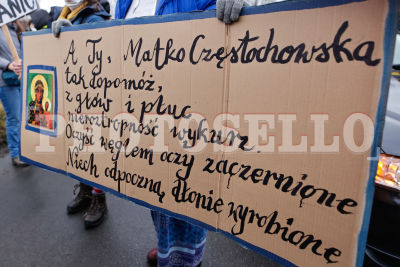 A Ty, Matko Częstochowska
tak dopomóż,
z głów i płuc
nieroztropność wykurz.
Oczyść węglem oczy zaczernione
Niech odpoczną dłonie wyrobione
PHOTOSELLO.